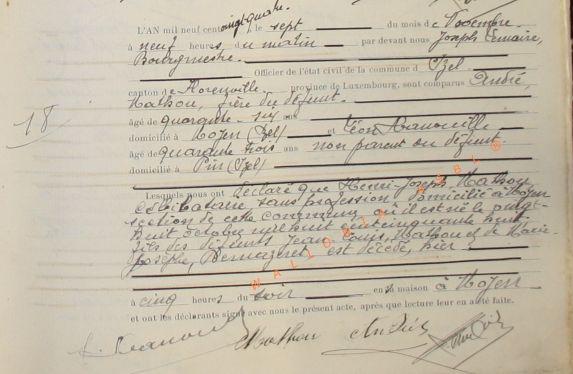 vingt-quatre
L'AN mil neuf cent, le sept du mois de Novembre
à neuf heures du matin par devant nous Joseph Lemaire,
Bourgmestre
Officier de l'état civil de la commune d'Izel
canton de Florenville province de Luxembourg, sont comparus André,
Mathon, frère du défunt
18
âgé de quarante-six ans
domicilié à Moyen (Izel) et Léon Manouille
âgé de quarante trois ans non parent du défunt
domicilié à Pin (Izel)
Lesquels nous ont déclaré que Henri-Joseph Mathon
célibataire, sans profession, domicilié à Moyen
section de cette commune, qu'il est né le vingt-
huit octobre mil huit cent cinquante huit
fils des défunts Jean Louis, Mathon et de Marie-
Josèphe, est décédé, hier
à cinq heures du soir en sa maison à Moyen
et ont les déclarants signé avec nous le présent acte, après que lecture leur en a été faite.
Mathon André